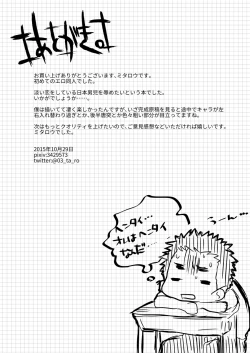 あとがきよ
お買い上げありがとうございます、ミタロウです。
初めてのエロ同人でした。
淡い恋をしている日本男児を辱めたいという本でした。
いかがでしょうか…。
僕は描いてて凄く楽しかったんですが、いざ完成原稿を見ると途中でキャラが左
右入れ替わり過ぎとか、後半唐突とか色々粗い部分が目立ってますね。
次はもっとクオリティを上げたいので、ご意見感想などいただければ嬉しいです。
ミタロウでした。
2015年10月29日
pixiv:3429573
twitter:@03_ta_ro
うーん…
ヘンタイ…
オレはヘンタイ
なんだ…